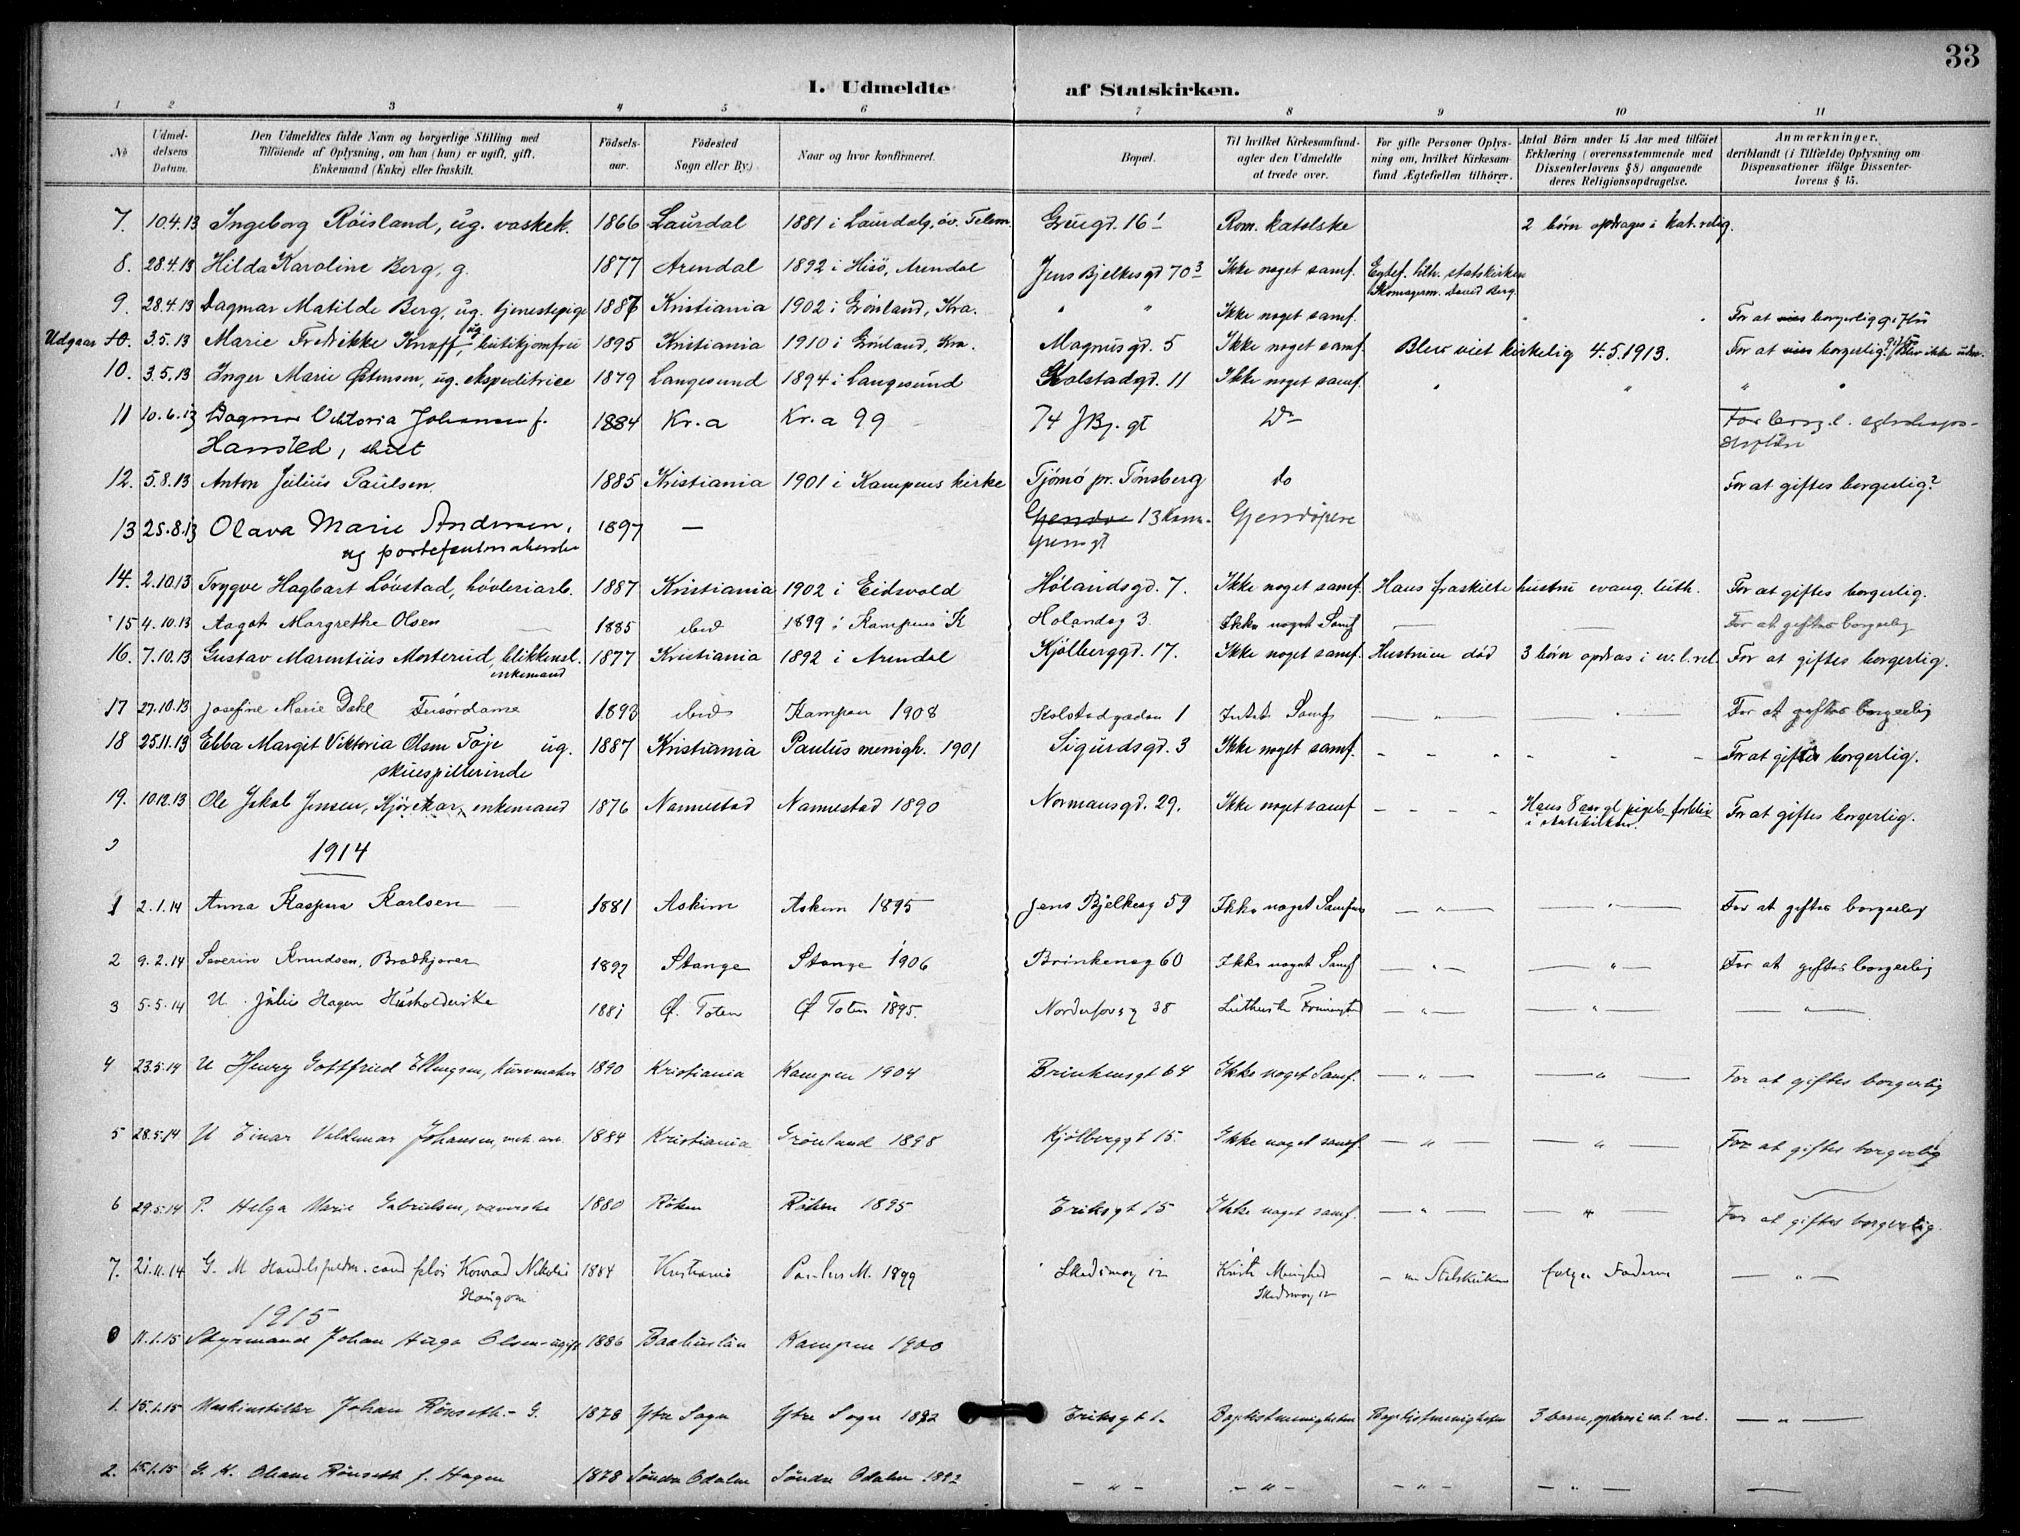 33
1. Udmeldte af Statskirken.
1 2 3 4 5 6 7 8 9 10 11
№ | Udmeldelsens Datum. | Den Udmeldtes fulde Navn og borgerlige Stilling med Tilföiende af Oplysning, om han (hun) er ugift, gift, Enkemand (Enke) eller fraskilt. | Födselsaar. | Födested Sogn eller By.) | Naar og hvor konfirmeret. | Bopæl. | Til hvilket Kirkesamfund agter den Udmeldte at træde over. | For gifte Personer Oplysning om, hvilket Kirkesamfund Ægtefællen tilhörer. | Antal Börn under 15 Aar med tilföiet Erklæring (overensstemmende med Dissenterlovens § 8) angaaende deres Religionsopdragelse. | Anmærkninger, deriblandt (i Tilfælde) Oplysning om Dispensationer ifölge Dissenterlovens § 15.
7. | 10.4.13 | Ingeborg Röisland, ug. vaskek. | 1866 | Laurdal | 1881 i Laurdal, öv. Telem. | Grügd. 16 | Rom. katolske | | 2 börn opdrages i kat. relig.
8. | 28.4.13 | Hilda Karoline Berg, g. | 1877 | Arendal | 1892 i Hisö, Arendal | Jens Bjelkesgd 70 3 | Ikke noget samf. | Egtef. tilh. statskirken Skomagerm. David Berg.
9. | 28.4.13 | Dagmar Matilde Berg, ug. tjenestepige | 1887 | Kristiania | 1902 i Grönland, Kra. | " " | Ikke noget samf. | | | For at borgerlig giftes
Udgaar 10. | 3.5.13 | Marie Fredrikke Knoff, ug. butikjomfru | 1895 | Kristiania | 1910 i Grönland, Kra. | Magnusgd. 5 | Ikke noget samf. | Blev viet kirkelig 4.5.1913. | | For at borgerlig giftes Blev ikke udm.
10. | 3.5.13 | Inger Marie Östensen, ug. ekspeditrice | 1879 | Langesund | 1894 i Langesund | Kolstadgd. 11 | Ikke noget samf. | " | " | " "
11 | 10.6.13 | Dagmar Viktoria Johansen f. Hansted, skilt | 1884 | Kr.a | Kr.a 99 | 74 J. Bj. gt | Do | | | For borgl.
12. | 5.8.13 | Anton Julius Paulsen | 1885 | Kristiania | 1901 i Kampens kirke | Tjömö pr. Tönsberg | do | | | For at giftes borgerlig?
13 | 25.8.13 | Olava Marie Andersen, ug | 1897 | — | | 13 Kampengt | Gjendöpere
14. | 2.10.13 | Trygve Hagbart Lövstad, hövleriarb. | 1887 | Kristiania | 1902 i Eidsvold | Hölandsgd. 7. | Ikke noget samf. | Hans fraskilte hustru evang. luth. | | For at giftes borgerlig.
15 | 4.10.13 | Aagot Margrethe Olsen | 1885 | ibid | 1899 i Kampens K | Holandsg 3 | Ikke noget Samf | — | — | For at giftes borgerlig
16. | 7.10.13 | Gustav Marentius Mosterud, blikkensl. enkemand | 1877 | Kristiania | 1892 i Arendal | Kjölberggd. 17. | Ikke noget samf. | Hustruen död | 3 börn opdras i ev. l. rel. | For at giftes borgerlig.
17 | 27.10.13 | Josefine Marie Dahl Frisördame | 1893 | ibid | Kampen 1908 | Kolstadgaden 1 | Intet Samf | — " — | — " — | For at giftes borgerlig
18 | 25.11.13 | Ebba Margit Viktoria Olsen Toje ug. skuespillerinde | 1887 | Kristiania | Paulus menigh. 1901 | Sigurdsgd. 3 | Ikke noget samf. | - - " | - - - | For at giftes borgerlig.
19. | 10.12.13 | Ole Jakob Jensen, Kjörekar, enkemand | 1876 | Nannestad | Nannestad 1890 | Normansgd. 29. | Ikke noget samf | - - - - | Hans 8 aar gl. pigeb. forblir i statskirken. | For at giftes borgerlig.
1914
1 | 2.1.14 | Anna Kaspara Karlsen | 1881 | Askim | Askim 1895 | Jens Bjelkesg 59 | Ikke noget Samfund | — " — | — " — | For at giftes borgerlig
2 | 9.2.14 | Severin Knudsen, Brödkjörer | 1892 | Stange | Stange 1906 | Brinkensg 60 | Ikke noget Samf | — " — | — " — | For at giftes borgerlig
3 | 5.5.14 | U. Julie Hagen Husholderske | 1881 | Ö. Toten | Ö Toten 1895. | 38 | Lutherske Frimenighed | — " — | — " — | — " —
4 | 23.5.14 | U Henry Gottfried Ellingsen, kurvmaker | 1890 | Kristiania | Kampen 1904 | Brinkensgt 64 | Ikke noget Samf. | — " — | — " — | For at giftes borgerlig
5 | 28.5.14 | U Einar Valdemar Johansen, mek. arb. | 1884 | Kristiania | Grönland 1898 | Kjölberggt 15. | Ikke noget samf | — " — | — " — | For at giftes borgerlig
6 | 29.5.14 | P. Helga Marie Gabrielsen, væverske | 1880 | Röken | Röken 1895 | Eriksgt 15 | Ikke noget samf. | — " — | — " — | For at giftes borgerlig.
7. | 21.11.14 | G. M cand filos Konrad Nikolai Haugom | 1884 | Kristiania | Paulus M. 1899 | Skedsmog 12 | Krist. Menighed Skedsmog 12 | Statskirken | følger Faderen | — " —
1915
0 | 11.1.15 | Styrmand Johan Hugo Olsen - ugift | 1886 | Baahuslän | Kampen 1900
1. | 15.1.15 | Maskinstiller Johan Rönseth - G. | 1878 | Ytre Sogn | Ytre Sogn 1892 | Eriksgt 1 | Baptistmenigheten | Baptistmenigheten | 3 barn, opdras i ev. l. rel. | — " —
2. | 15.1.15 | G. K. Oliane Rönseth f. Hagen | 1878 | Söndre Odalen | Söndre Odalen 1892 | - " - | - " - | - " - | - " - | —